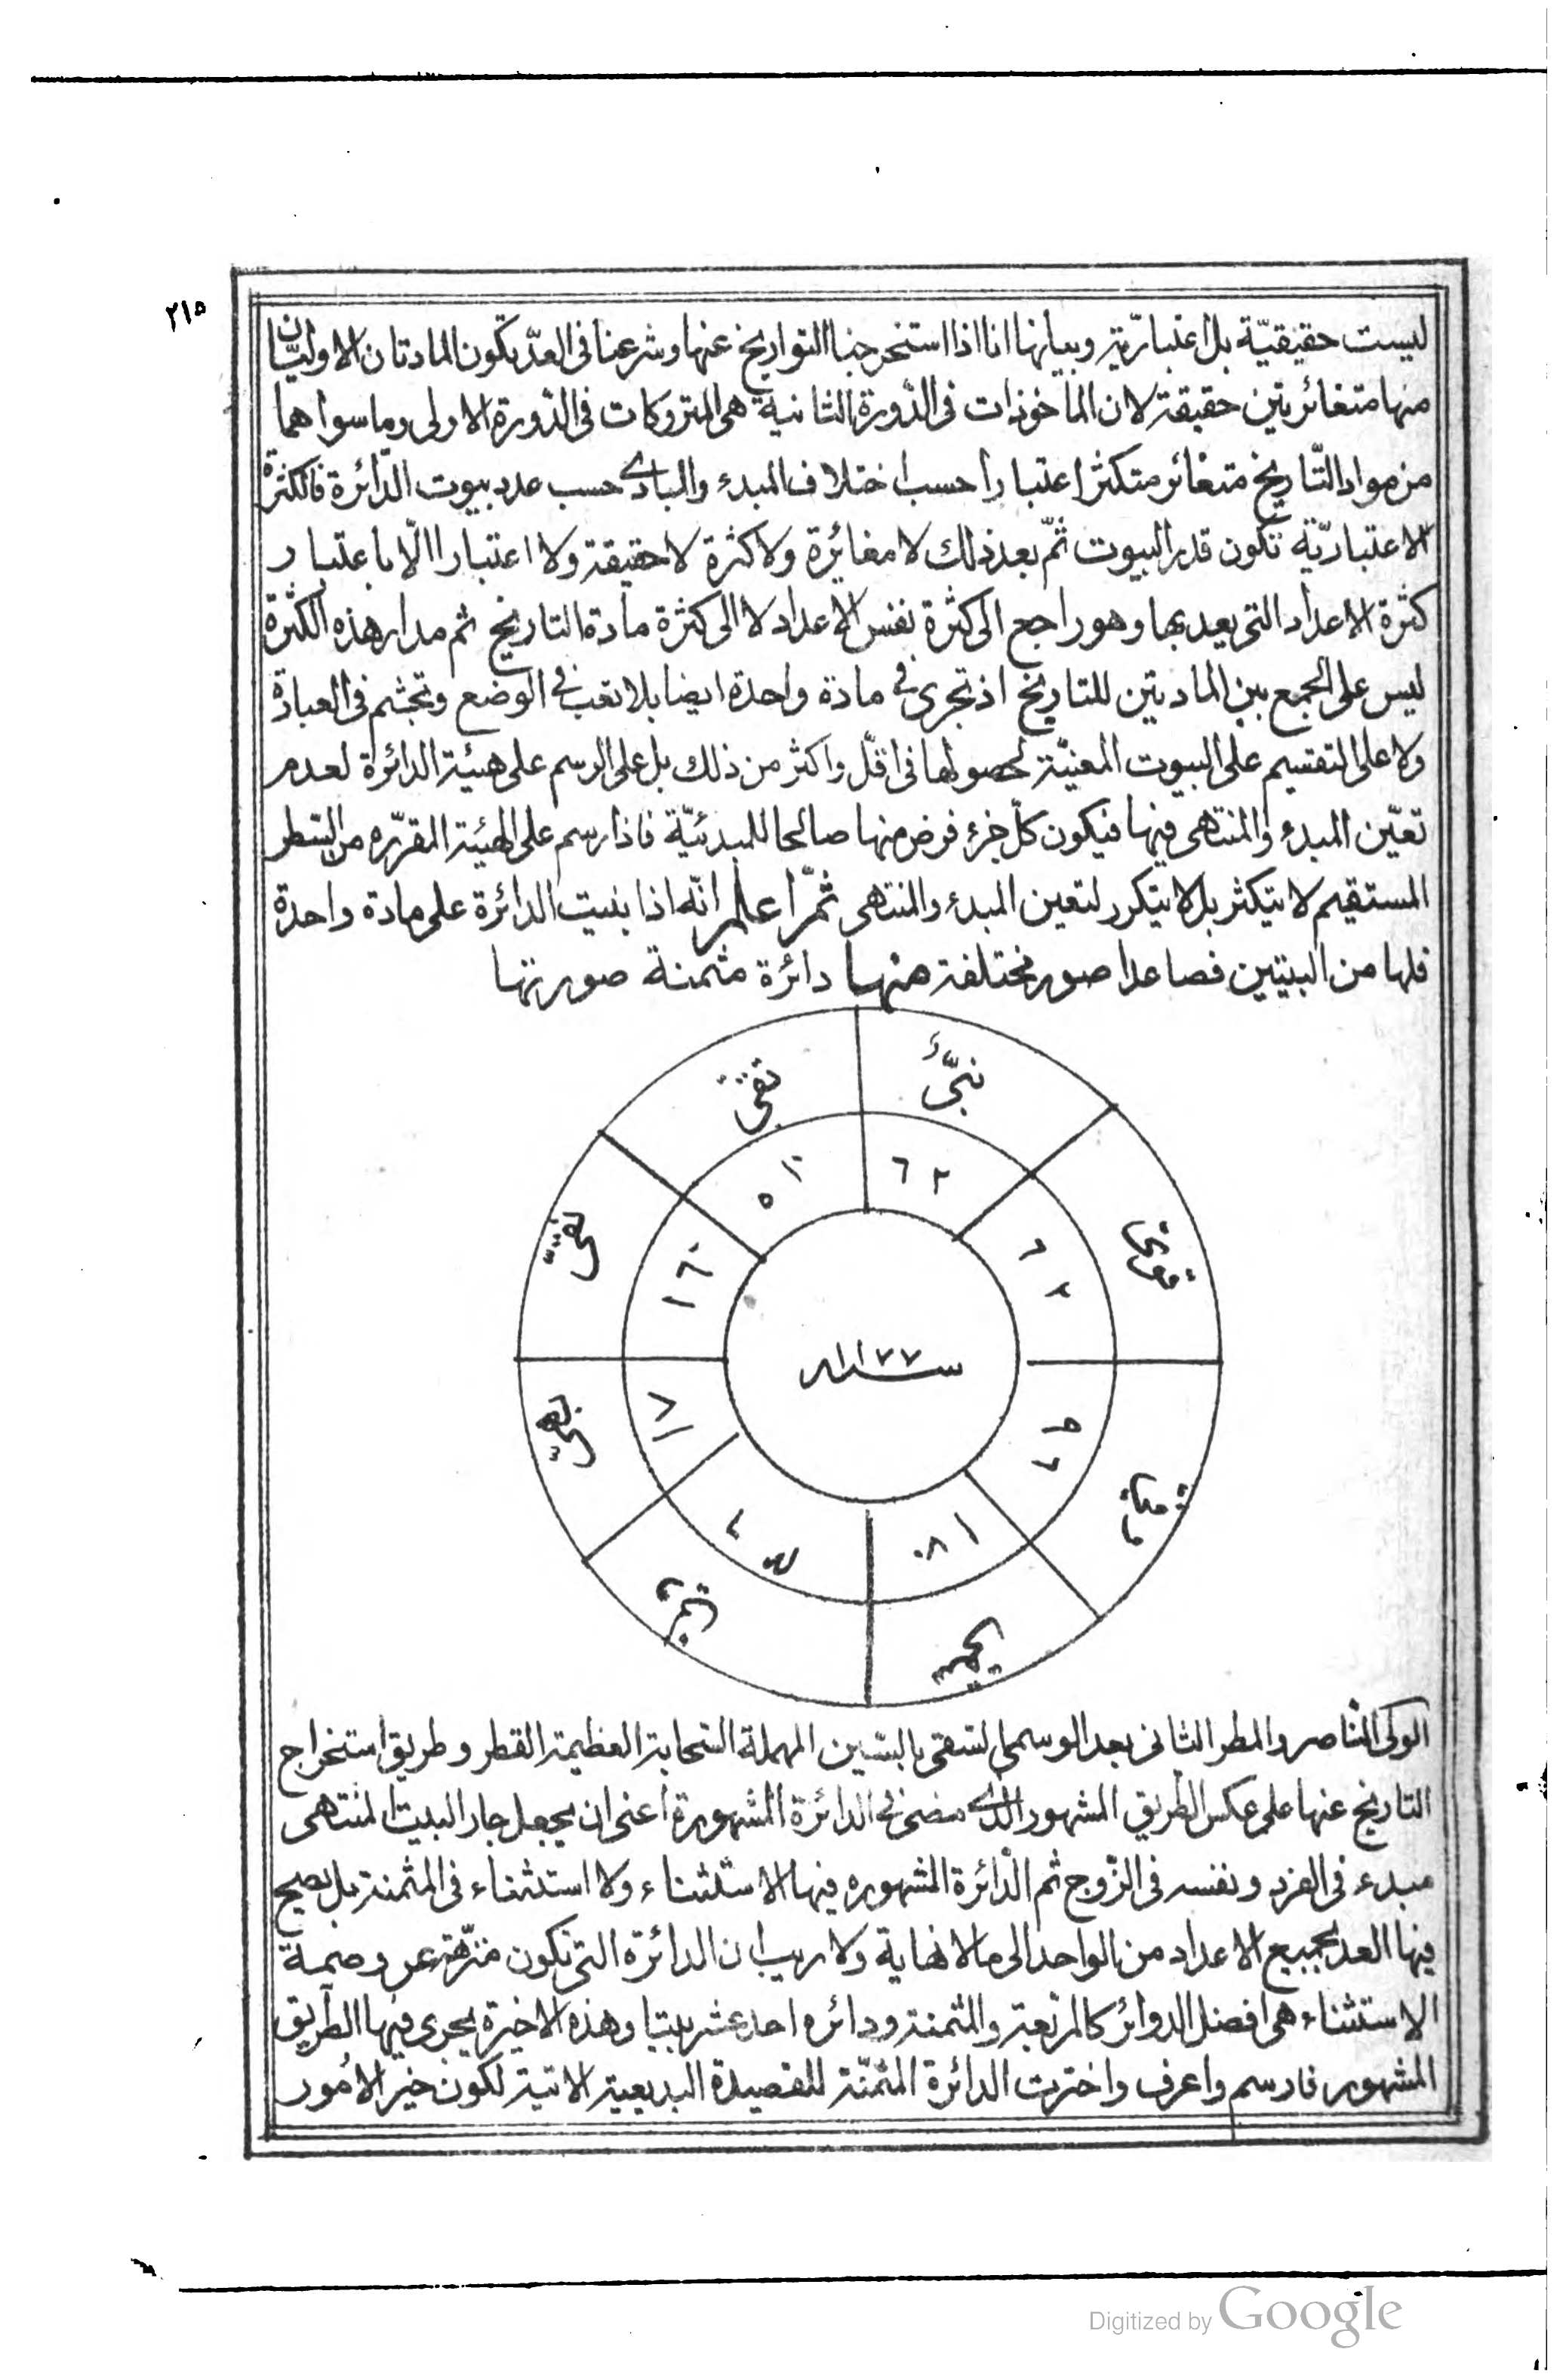 ٢١٥
ليست حقيقيّة بل اعتباريّة وبيانها انا اذا استخرجنا التواريخ عنها وشرعنا فى العدّ تكون المادتان الاوليّان
منها متغائرتين حقيقة لان المأخوذات فى الدّورة الثانية هى المتروكات فى الدّورة الاولى وما سواهما
من مواد التّاريخ متغائر متكثر اعتبارا حسب اختلاف المبدء والمبادى حسب عدد بيوت الدّائرة فالكثرة
الاعتباريّة تكون قدر البيوت ثمّ بعد ذلك لا مغائرة ولا كثرة لا حقيقة ولا اعتبارا الّا باعتبار
كثرة الاعداد التى يعد بها وهو راجع الى كثرة نفس الاعداد لا الى كثرة مادة التاريخ ثم مدار هذه الكثرة
ليس على الجمع بين المادتين للتاريخ اذ تجرى فى مادة واحدة ايضا بلا تعب فى الوضع وتجشم فى العبادة
ولا على التقسيم على البيوت المعنيّة لحصولها فى اقلّ واكثر من ذلك بل على الرسم على هيئة الدائرة لعدم
تعيّن المبدء والمنتهى فيها فيكون كلّ جزء فرض منها صالحا للمبدئيّة فاذا رسم على الهيئة المقرّره من السّطر
المستقيم لا يتكثر بل لا يتكرر لتعين المبدء والمنتهى ثمّ اعلم انّه اذا بنيت الدائرة على مادة واحدة
فلها من البيتين فصاعدا صور مختلفة منها دائرة مثمنة صورتها
نبىّ
٦٢
تقى
١٦٠
١١٧٧
الولى النّاصر والمطر الثانى بعد الوسمى السقى بالسّين المهملة السّحابة العظيمة القطر وطريق استخراج
التاريخ عنها على عكس الطّريق المشهور الذى مضى فى الدائرة المشهورة اعنى ان يجعل جار البيت المنتهى
مبدء فى الفرد ونفسه فى الزّوج ثم الدّائرة المشهوره فيها الاستثناء ولا استثناء فى المثمنة بل يصح
فيها العد بجميع الاعداد من الواحد الى ما لا نهاية ولا ريب ان الدائرة التى تكون منزّهة عن وصمة
الاستثناء هى افضل الدوائر كالمربّعة والمثمنة ودائره احد عشر بيتا وهذه الاخيرة يجرى فيها الطّريق
المشهور فارسم واعرف واخترت الدائرة المثمّنة للقصيدة البديعية الاتية لكون خير الامور
Digitized by Google